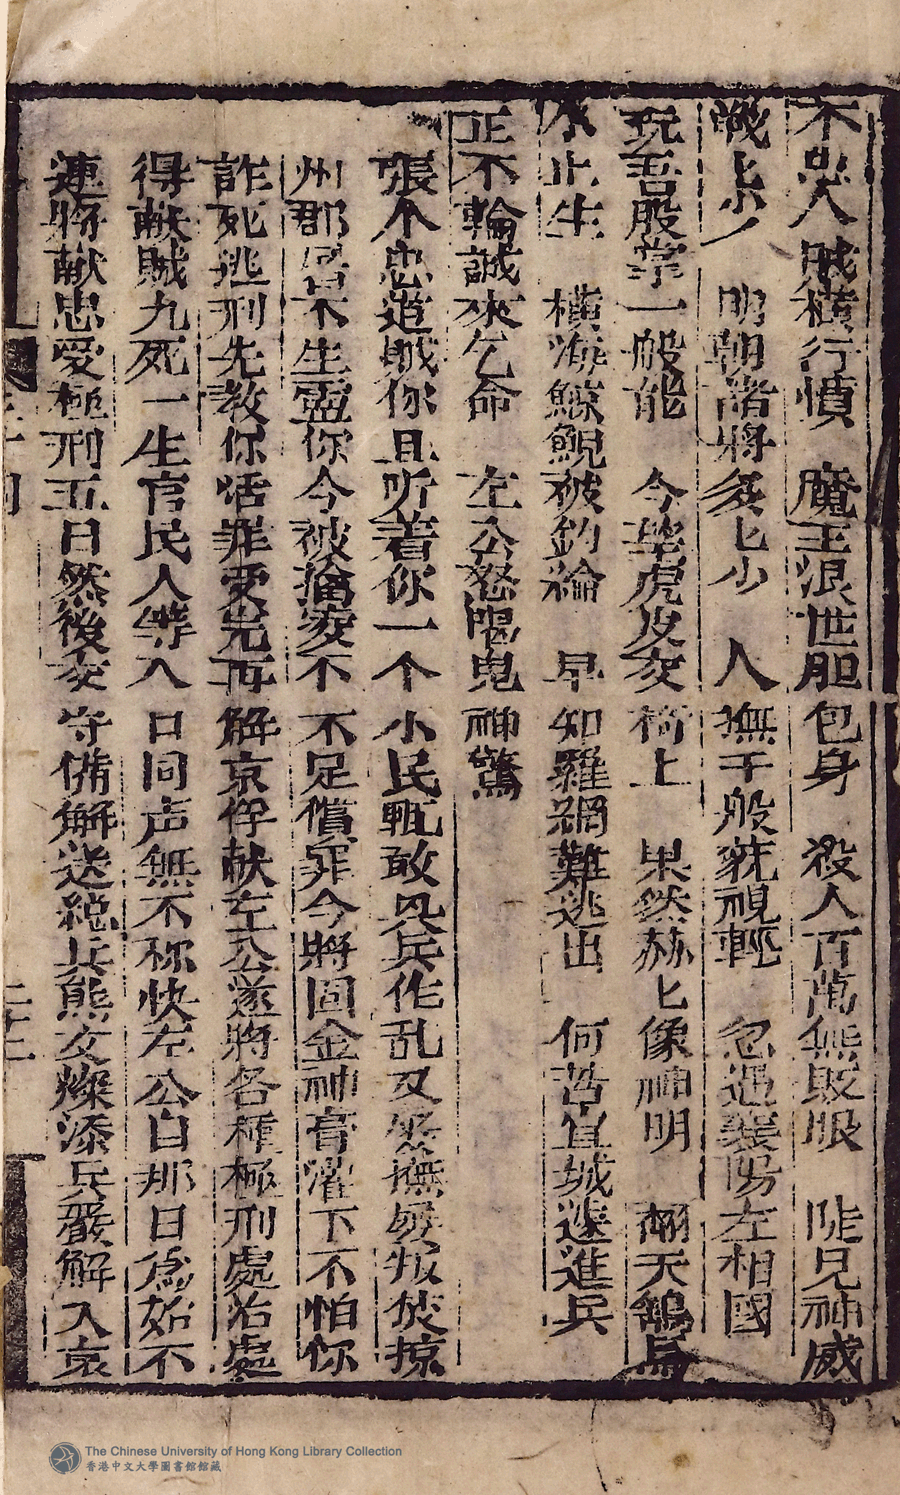 不㘞人賊橫行憤　魔王混世胆包身　殺人百萬無貶眼　陡見神威
戰
明朝諸將多匕少　人撫千般藐視輕　忽遇襄陽左相國
玩吾股掌一般能　今坐虎皮交椅上　果然赫匕像神明　翻天鷂鳥
止生　橫海鯨鯢被釣綸　早知羅網難逃出　何苦宜城速進兵
正不輪誠來乞命　左公怒陽鬼神驚
張个忠道賊你且听着你一个小民輒敢兵作乱又受撫屡叛焚掠
州郡不生靈你今被擒凌不不足償罪今將固金神膏灌下不怕你
詐死逃刑先教你活罪受完再解京俘献左公遂將各種極刑處治處
得献賊九死一生官民人等入口同声無不称快左公自那日爲始不
連將献忠受極刑五日然後交守備解送總兵熊文燦添兵嚴解入京
二十二
The Chinese University of Hong Kong Library Collection
香港中文大學圖書館館藏